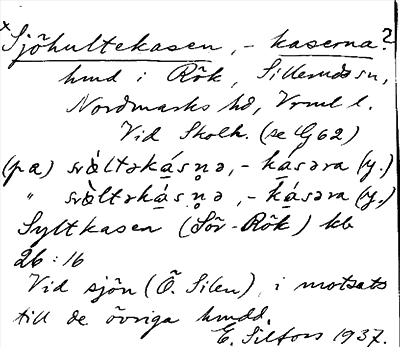 × Sjöhultekasen, - kaserna?
hmd i Rök, Sillerudssn,
Nordmarks hd, Vrml l.
Vid Skolh. (se G62)
(på) svæ̀ltəkásn̥ə, - kásəra (y.)
" svæ̀ltəkásn̥ə, - kásəra (y.)
Syltkasen (Sör-Rök) kb
26:16
Vid sjön (Ö. Silen), i motsats
till de övriga hmdd.
E. Silfors 1937.